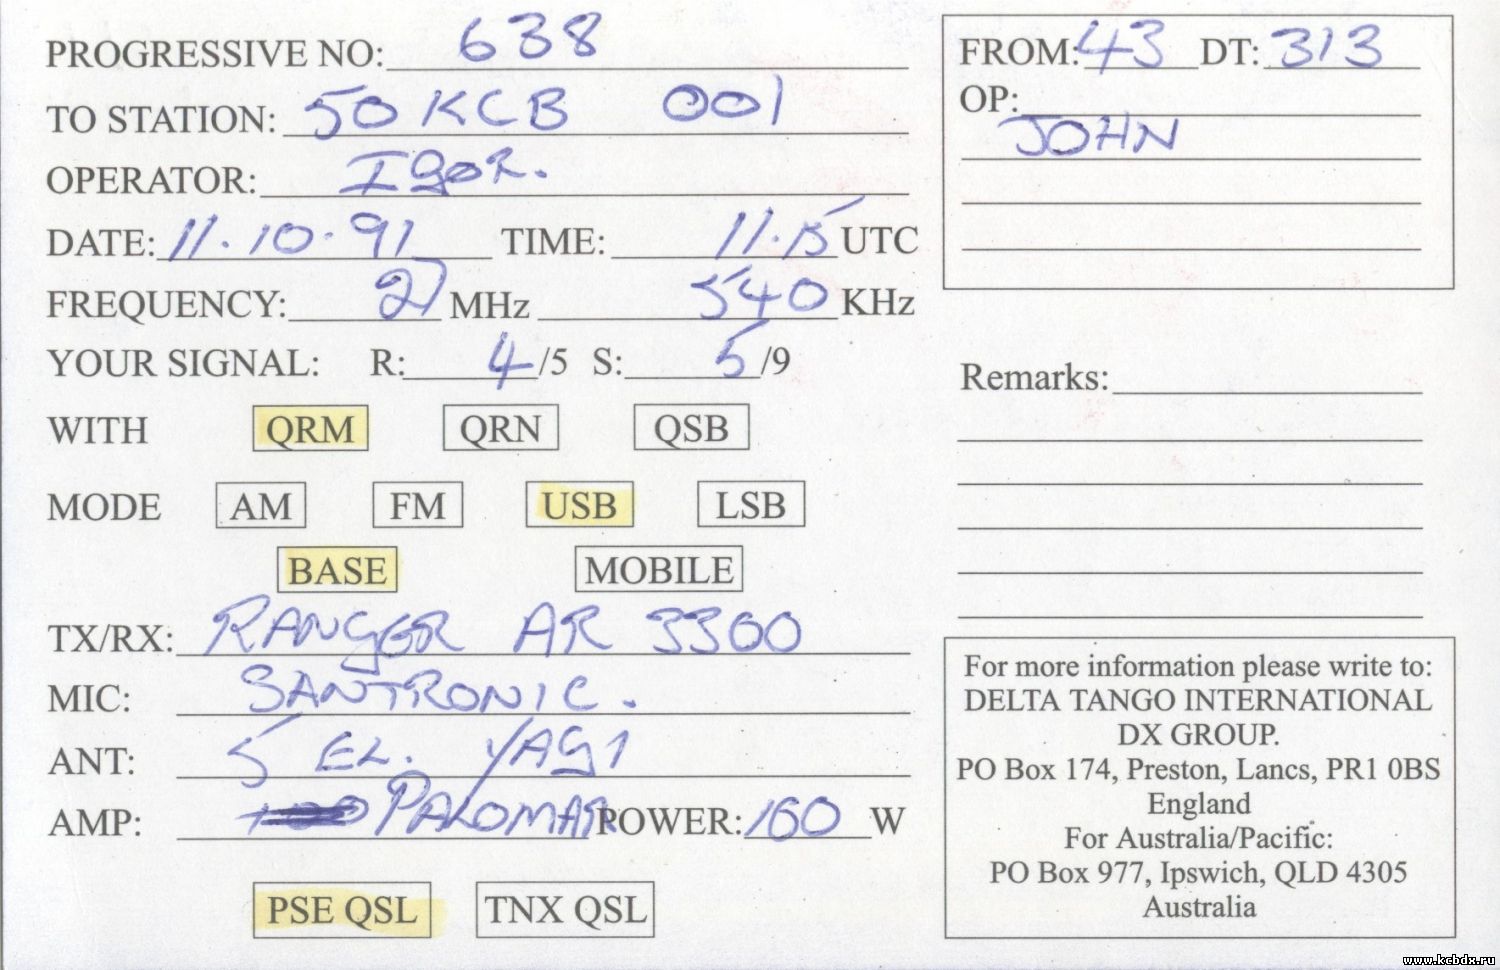 PROGRESSIVE NO: 638
TO STATION: 50 KCB 001
OPERATOR: IgOR.
DATE: 11.10.91 TIME: 11.15 UTC
FREQUENCY: 27 MHz 540 KHz
YOUR SIGNAL: R: 4/5 S: 5/9
WITH QRM QRN QSB
MODE AM FM USB LSB
BASE MOBILE
TX/RX: RANGER AR 3300
MIC: SANTRONIC.
ANT: 5 EL. YAGI
AMP: PALOMAR POWER: 160 W
PSE QSL TNX QSL
FROM: 43 DT: 313
OP:
JOHN
Remarks:
For more information please write to:
DELTA TANGO INTERNATIONAL
DX GROUP.
PO Box 174, Preston, Lancs, PR1 0BS
England
For Australia/Pacific:
PO Box 977, Ipswich, QLD 4305
Australia
www.kcbdx.ru